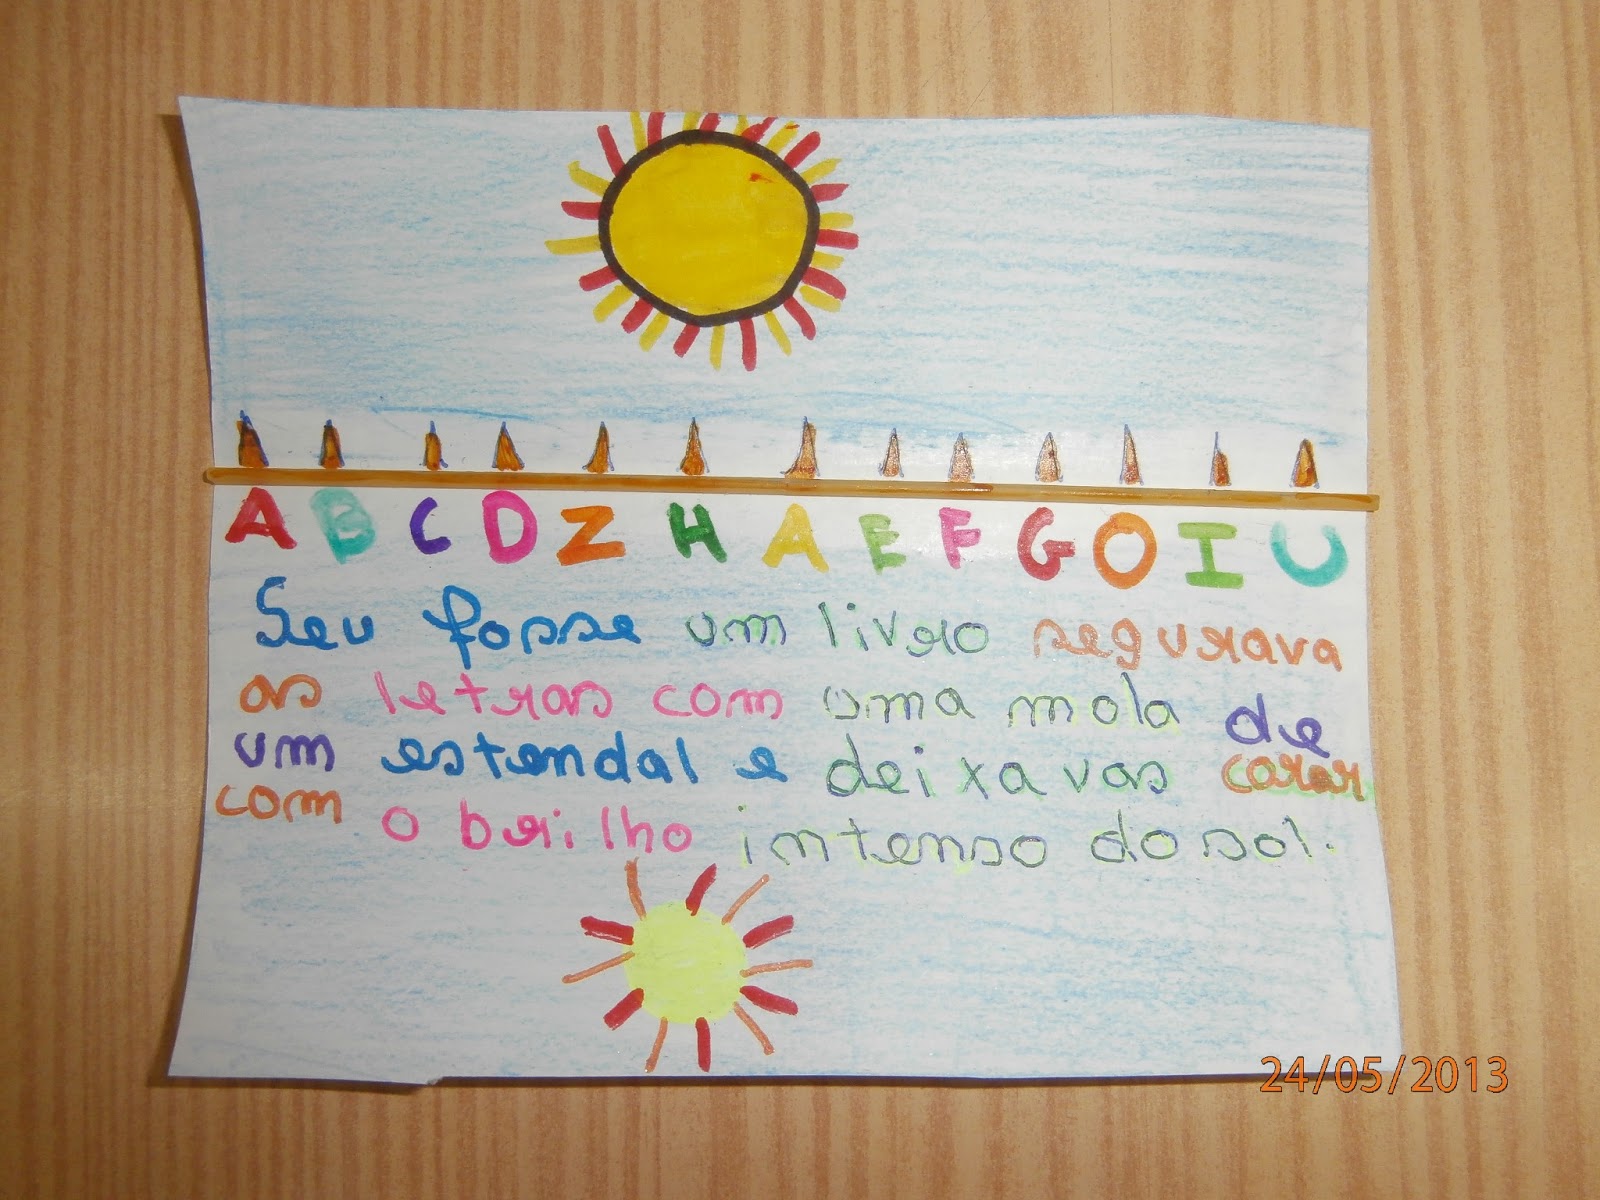 A B C D Z H A E F G O I U
Seu fosse um livro segurava
as letras com uma mola de
um estendal e deixavas carar
com o brilho intenso do sol.
24/05/2013